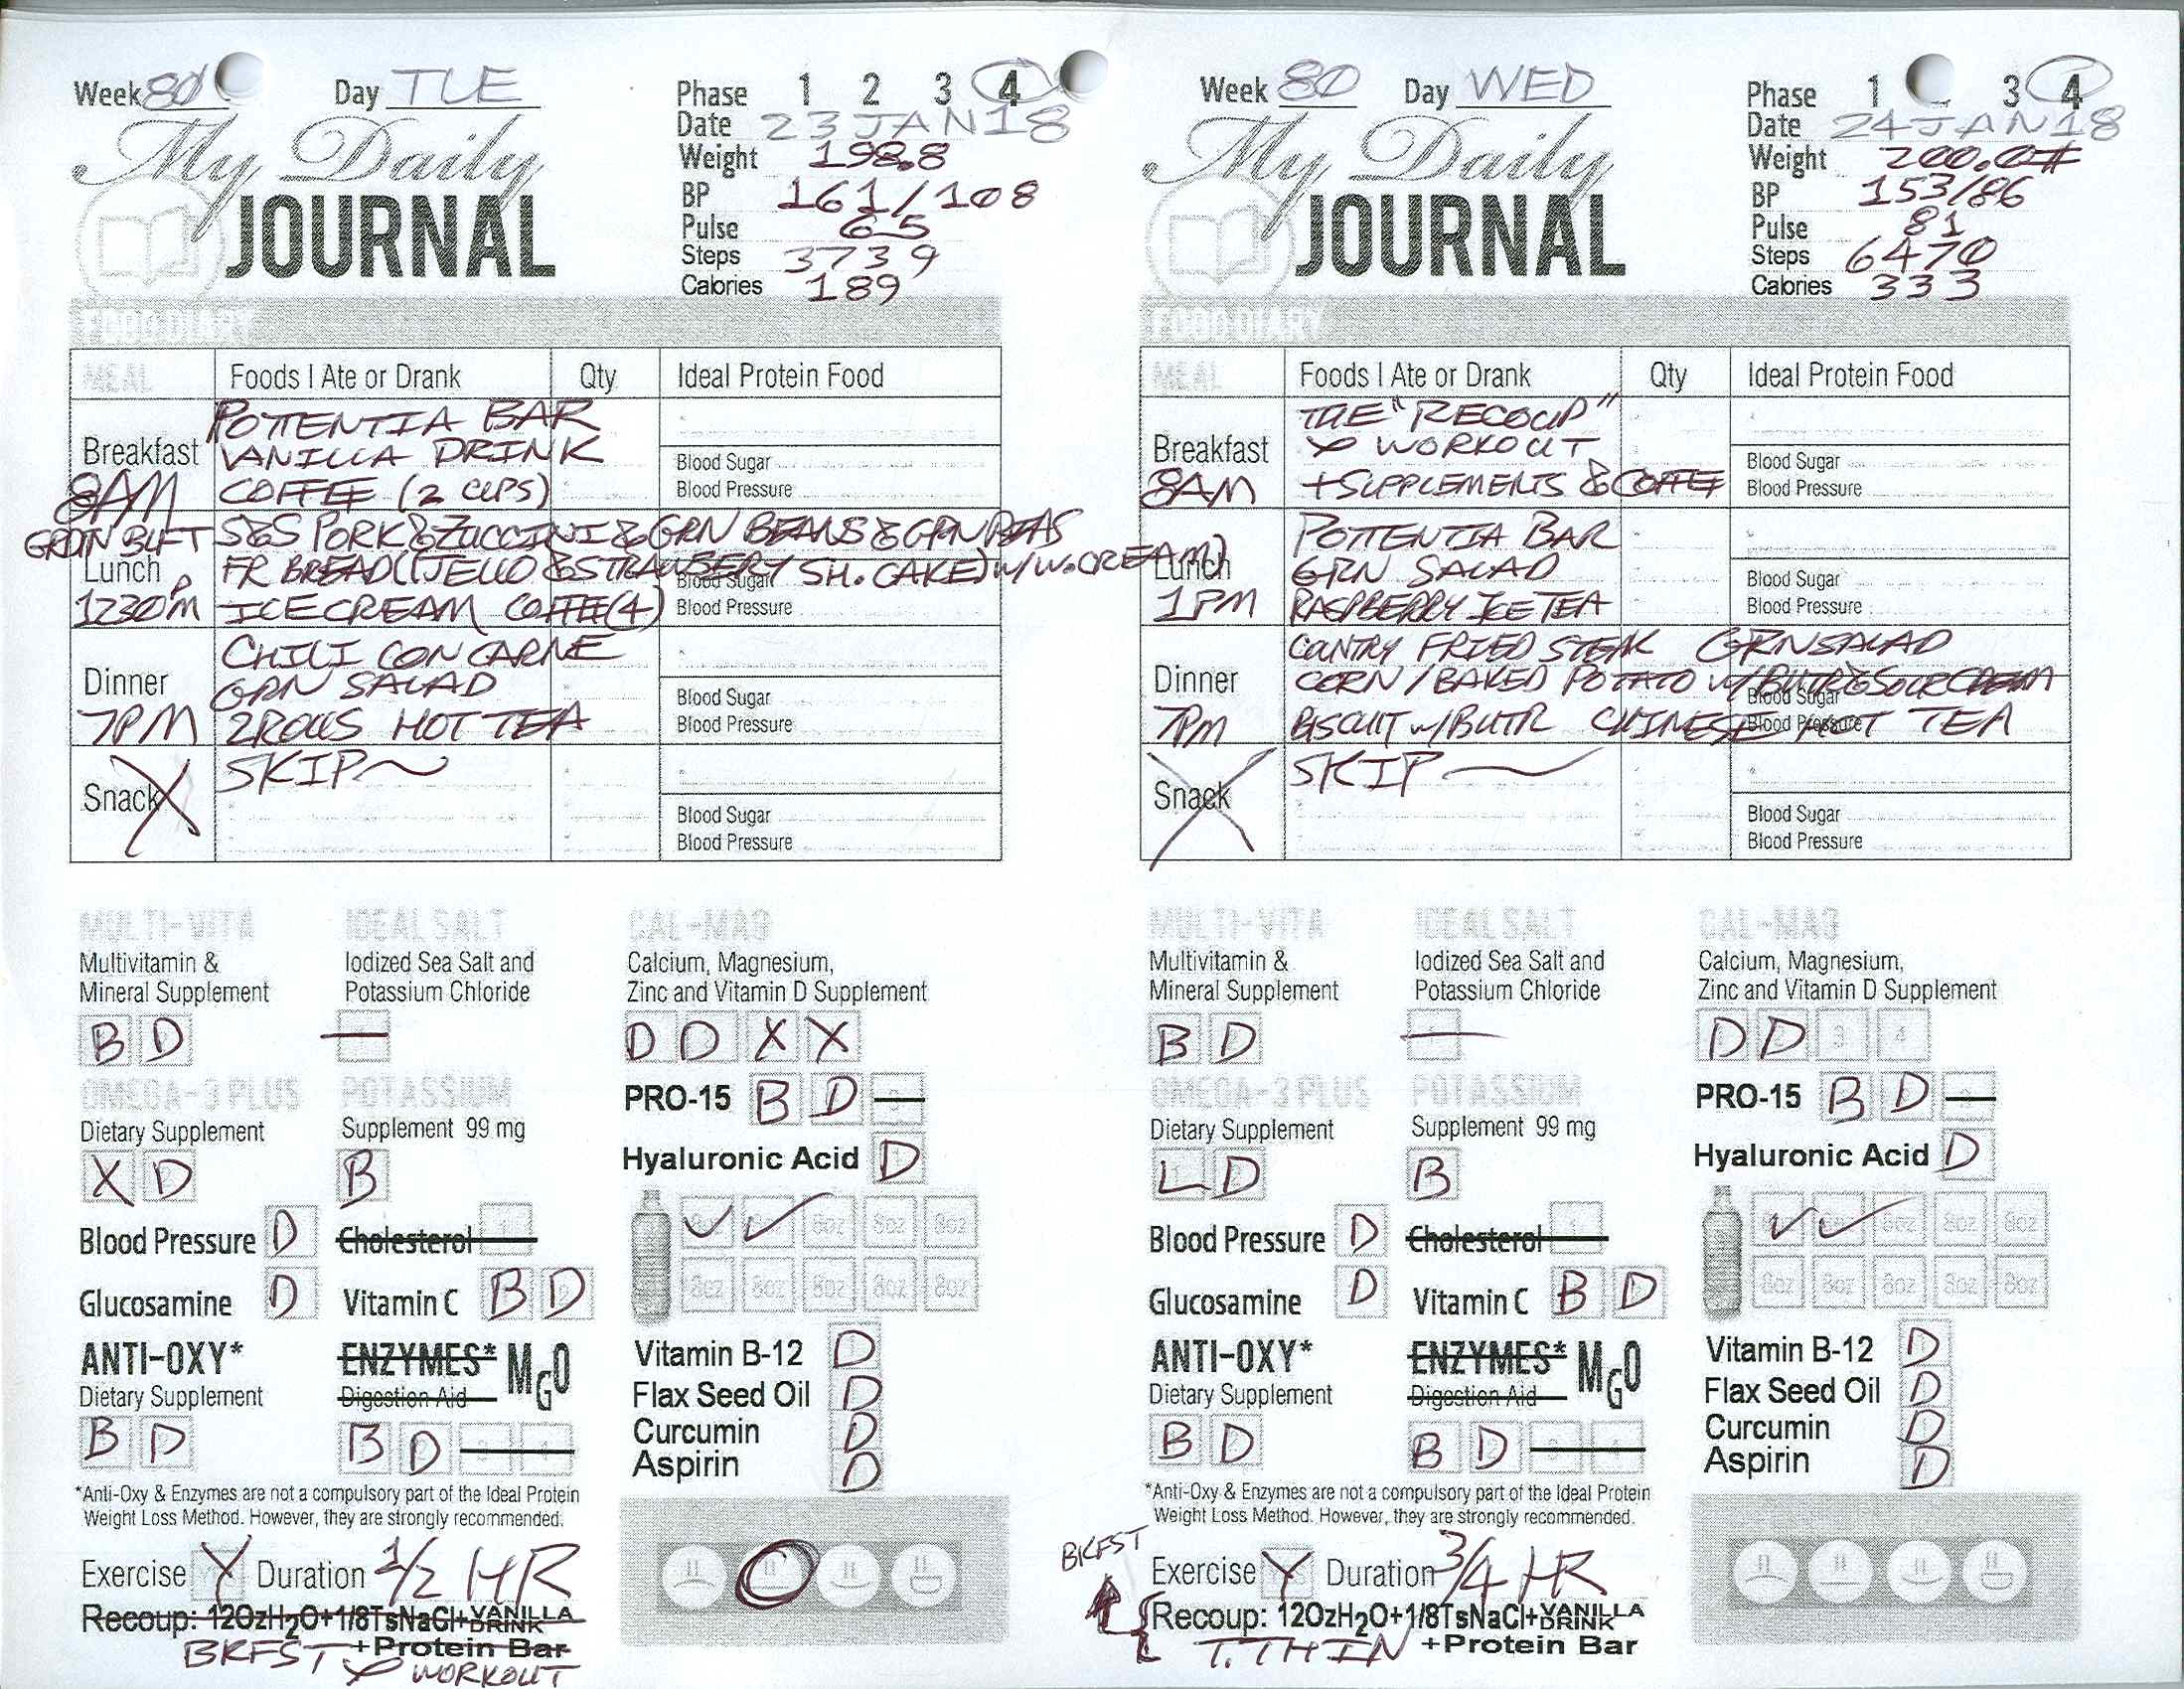 Week 80 Day TUE
Phase 1 2 3 4
Date 23JAN18
My Daily
JOURNAL
Weight 198.8
BP 161/108
Pulse 65
Steps 3739
Calories 189
FOOD DIARY
MEAL Foods I Ate or Drank Qty Ideal Protein Food
POTTENTIA BAR
Breakfast VANILLA DRINK Blood Sugar
8AM COFFEE (2 CUPS) Blood Pressure
GRDN BUFT S&S PORK & ZUCCINI & GRN BEANS & GRN PEAS
Lunch FR BREAD (JELLO & STRAWBERY SH. CAKE) W/W.CREAM) Blood Sugar
1230PM ICE CREAM COFFEE(4) Blood Pressure
CHILI CON CARNE
Dinner GRN SALAD Blood Sugar
7PM 2 ROLLS HOT TEA Blood Pressure
Snack SKIP
Blood Sugar
Blood Pressure
MULTI-VITA IDEAL SALT CAL-MAG
Multivitamin & Iodized Sea Salt and Calcium, Magnesium,
Mineral Supplement Potassium Chloride Zinc and Vitamin D Supplement
B D — D D X X
OMEGA-3 PLUS POTASSIUM PRO-15 B D —
Dietary Supplement Supplement 99 mg
X D B Hyaluronic Acid D
Blood Pressure D Cholesterol 8oz 8oz 8oz 8oz
Glucosamine D Vitamin C B D 8oz 8oz 8oz 8oz 8oz
ANTI-OXY* ENZYMES* MGO Vitamin B-12 D
Dietary Supplement Digestion Aid Flax Seed Oil D
B D B D Curcumin D
Aspirin D
*Anti-Oxy & Enzymes are not a compulsory part of the Ideal Protein
Weight Loss Method. However, they are strongly recommended.
Exercise Y Duration 1/2 HR
Recoup: 12OzH2O+1/8TsNaCl+VANILLA DRINK
+Protein Bar
BKFST WORKOUT
Week 80 Day WED
Phase 1 3 4
Date 24JAN18
My Daily
JOURNAL
Weight 200.0#
BP 153/86
Pulse 81
Steps 6470
Calories 333
FOOD DIARY
MEAL Foods I Ate or Drank Qty Ideal Protein Food
THE "RECOUP"
Breakfast WORKOUT Blood Sugar
8AM + SUPPLEMENTS & COFFEE Blood Pressure
POTTENTIA BAR
Lunch GRN SALAD Blood Sugar
1PM RASPBERRY ICE TEA Blood Pressure
COUNTRY FRIED STEAK GRN SALAD
Dinner CORN / BAKED POTATO W/BUTR & SOUR CREAM Blood Sugar
7PM BISCUIT W/BUTR CHINESE HOT TEA Blood Pressure
Snack SKIP
Blood Sugar
Blood Pressure
MULTI-VITA IDEAL SALT CAL-MAG
Multivitamin & Iodized Sea Salt and Calcium, Magnesium,
Mineral Supplement Potassium Chloride Zinc and Vitamin D Supplement
B D — D D 3 4
OMEGA-3 PLUS POTASSIUM PRO-15 B D —
Dietary Supplement Supplement 99 mg
L D B Hyaluronic Acid D
Blood Pressure D Cholesterol 8oz 8oz 8oz
Glucosamine D Vitamin C B D 8oz 8oz 8oz 8oz 8oz
ANTI-OXY* ENZYMES* MGO Vitamin B-12 D
Dietary Supplement Digestion Aid Flax Seed Oil D
B D B D Curcumin D
Aspirin D
*Anti-Oxy & Enzymes are not a compulsory part of the Ideal Protein
Weight Loss Method. However, they are strongly recommended.
BKFST Exercise Y Duration 3/4 HR
Recoup: 12OzH2O+1/8TsNaCl+VANILLA DRINK
T.THIN +Protein Bar